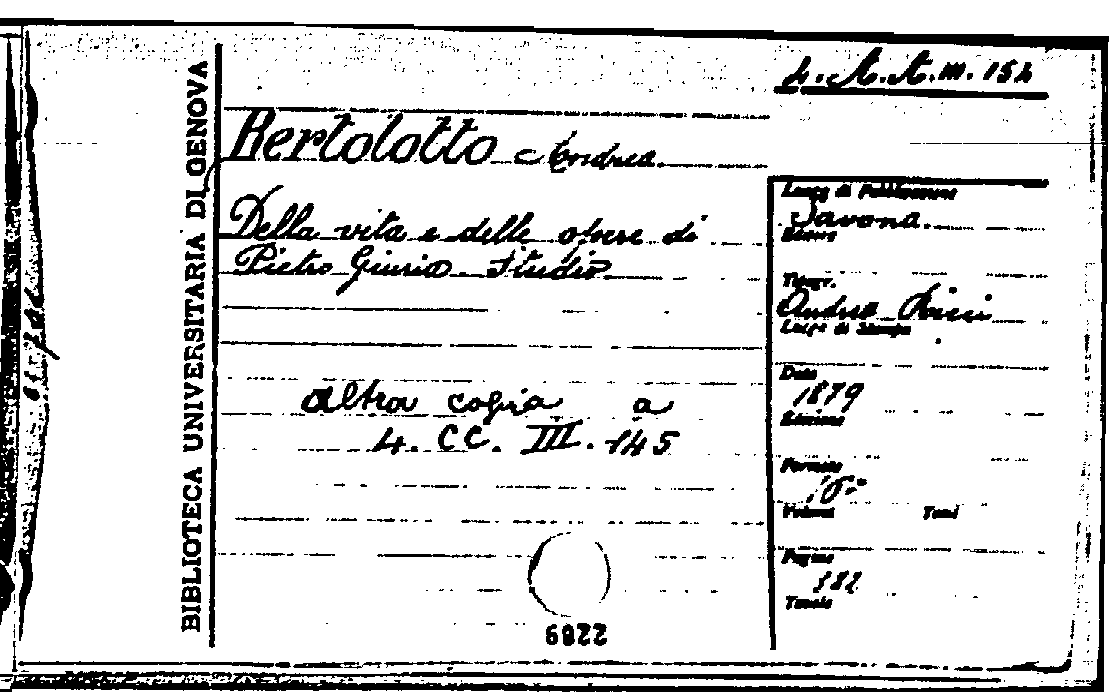 BIBLIOTECA UNIVERSITARIA DI GENOVA
4. A.A. III. 154
Bertolotto Andrea.
Della vita e delle opere di
Pietro Giuria. Studio
altra copia a
4. CC. III. 145
Luogo di Pubblicazione
Savona.
Editore
Tipogr.
Andrea Ricci
Luogo di Stampa
Data
1879
Edizione
Formato
16°
Volumi Tomi
Pagine
382
Tavole
2289